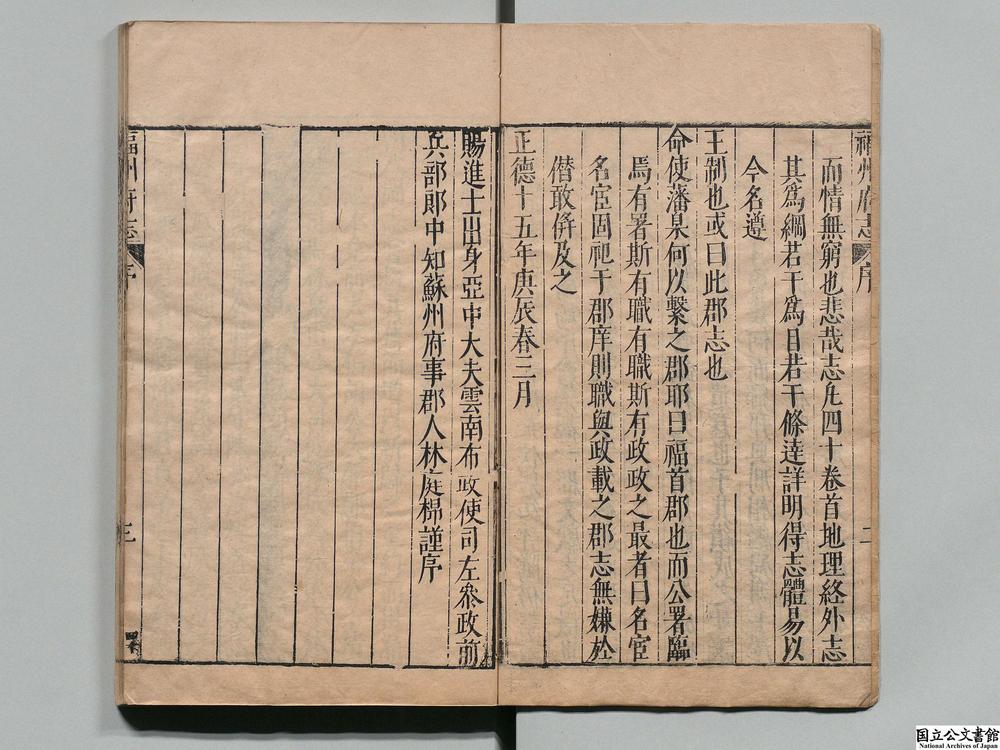 福州府志 序 二
而情無窮也悲哉志凡四十卷首地理終外志
其為綱若干為目若干條達詳明得志體易以
今名遵
王制也或曰此郡志也
命使藩臬何以繫之郡耶曰福首郡也而公署臨
焉有署斯有職有職斯有政政之最者曰名宦
名宦固祀于郡庠則職與政載之郡志無嫌於
僣敢倂及之
正德十五年庚辰春三月
賜進士出身亞中大夫雲南布政使司左叅政前
兵部郎中知蘇州府事郡人林庭㭿謹序
福州府志 序 三
国立公文書館
National Archives of Japan